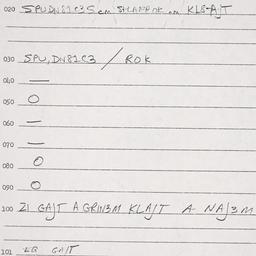 020 SPUDN81C3S em SHLAPPOK om KLG-AJT
030 SPU,DN81C3 / ROK
040 —
050 O
060 —
070 —
080 O
090 O
100 ZI GAJT A GRIN3M KLAJT A NAJ3M
101 EQ GAJT